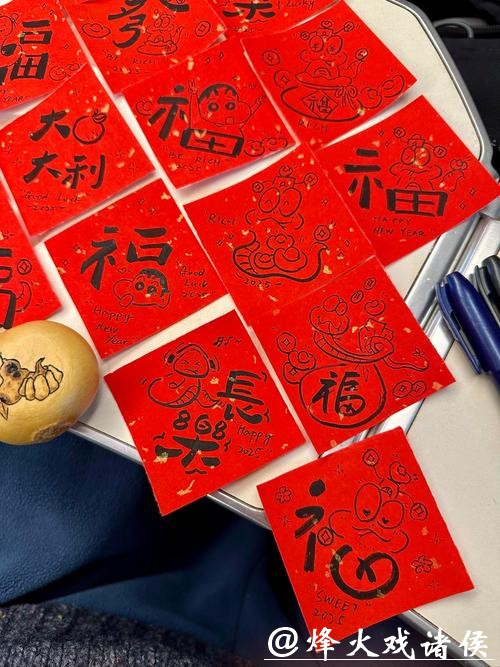 福
YEAR
BE RICH
2025
Lucky
大
大利
Good Luck
2025
福
BE RICH
2025
福
RICH
福
HAPPY
NEW YEAR
福
Happy
New
Year
Good
Luck
2025
RICH
2025
福
長
868
大
Happy
2025
福
"SWEET"
2025
@烽火戏诸侯